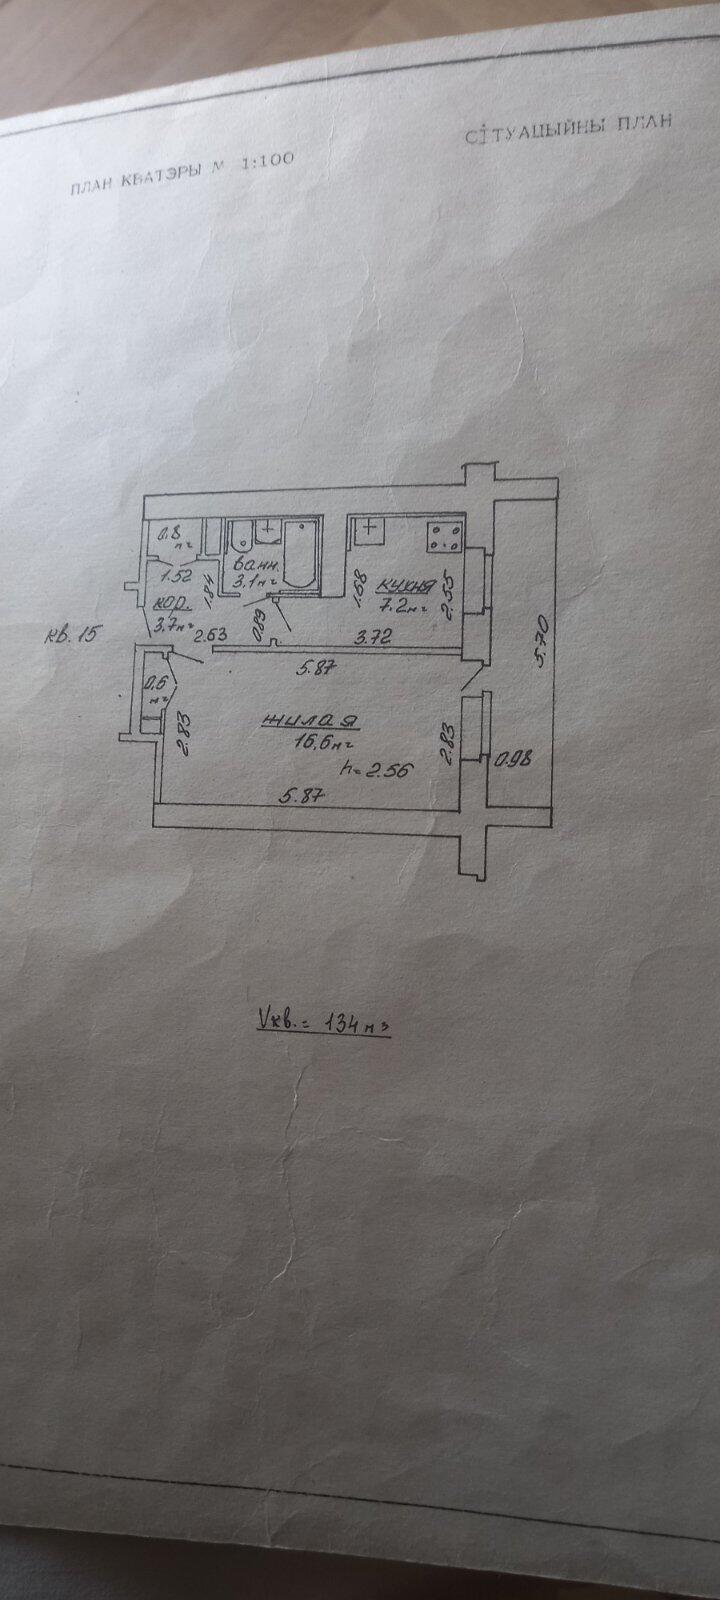 ПЛАН КВАТЭРЫ М 1:100
СІТУАЦЫЙНЫ ПЛАН
0.8 м²
1.52
1.84
ванн.
3.1м²
1.68
кухня
7.2м²
2.55
кор.
3.7м²
кв. 15
2.63
0.89
3.72
5.70
0.6 м²
5.87
2.83
жилая
16.6м²
2.83
0.98
h=2.56
5.87
Vкв.= 134м³